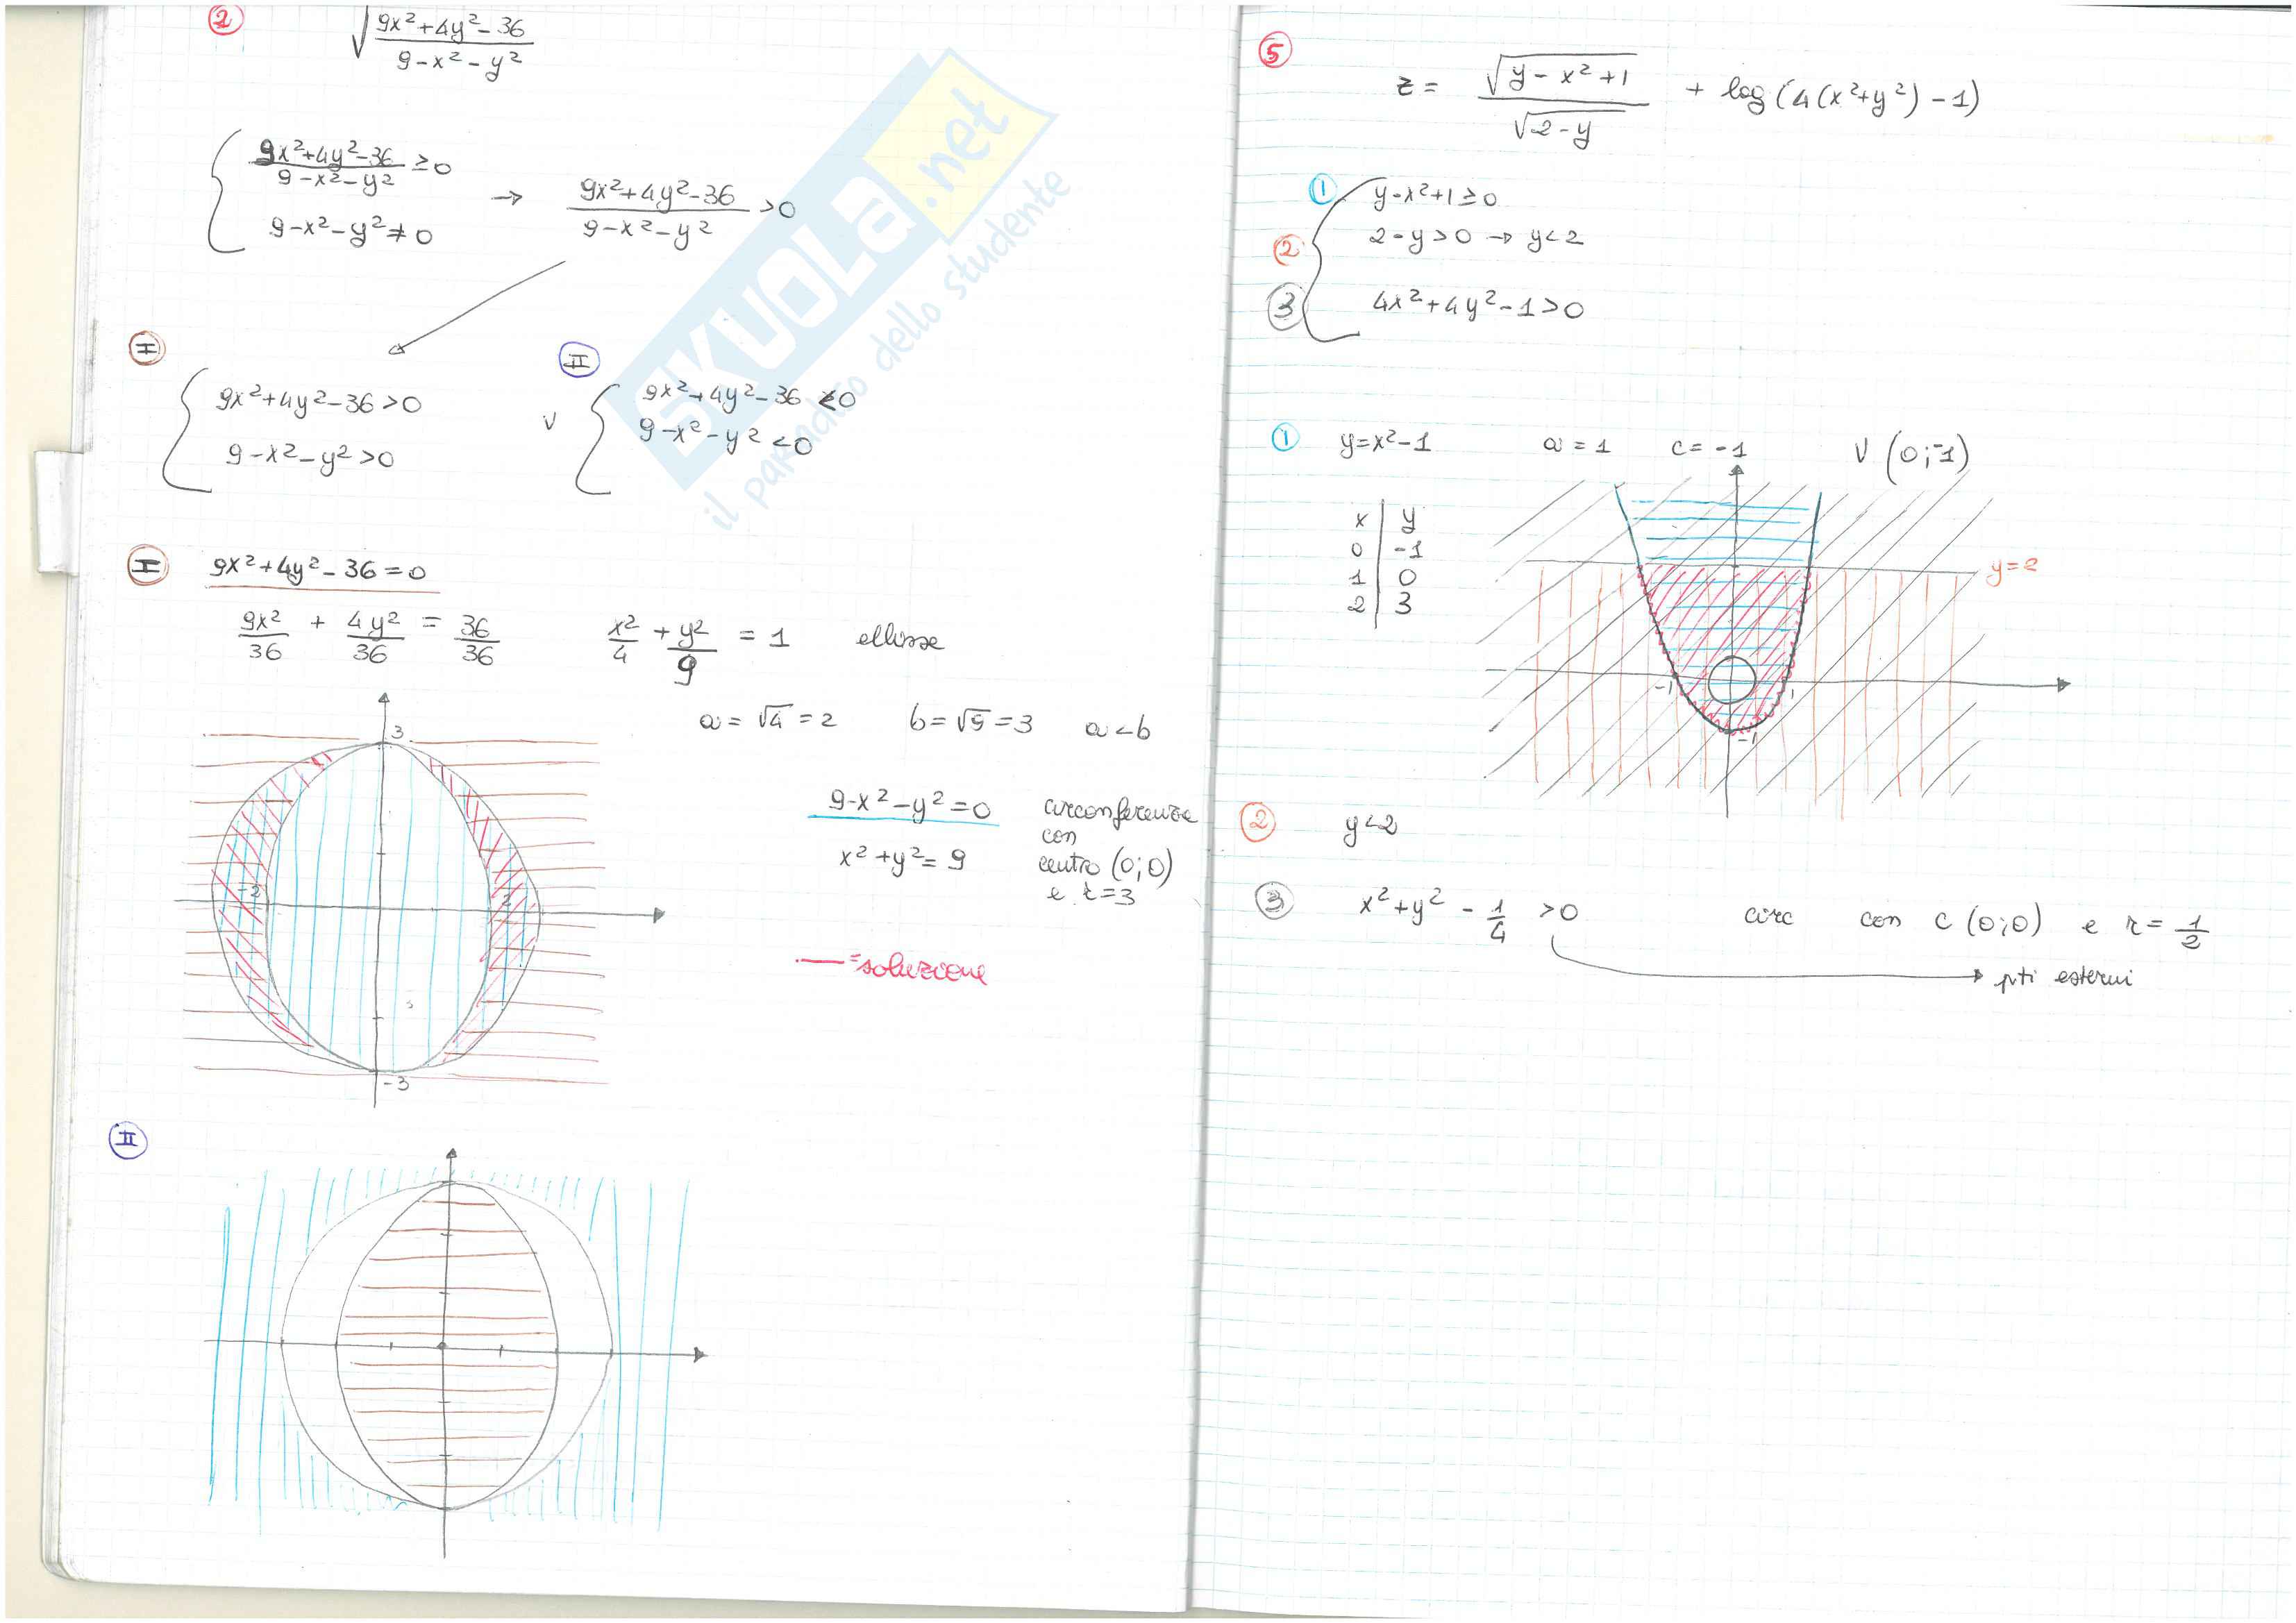 2
√(9x²+4y²-36 / 9-x²-y²)
{ 9x²+4y²-36 / 9-x²-y² ≥0
9-x²-y²≠0
→ 9x²+4y²-36 / 9-x²-y² >0
I
{ 9x²+4y²-36>0
9-x²-y²>0
V
II
{ 9x²+4y²-36 <0
9-x²-y²<0
I 9x²+4y²-36=0
9x²/36 + 4y²/36 = 36/36
x²/4 + y²/9 = 1 ellisse
a = √4 = 2 b = √9 = 3 a<b
3
-2
2
-3
9-x²-y²=0
x²+y²=9
circonferenza
con
centro (0;0)
e r=3
—=soluzione
II
SKUOLA.net
il paradiso dello studente
5
z = √(y-x²+1) / √(2-y) + log(4(x²+y²)-1)
1 { y-x²+1≥0
2 2-y>0 → y<2
3 4x²+4y²-1>0
1 y=x²-1 a=1 c=-1 V (0;-1)
x | y
0 | -1
1 | 0
2 | 3
y=2
-1
1
-1
2 y<2
3 x²+y² - 1/4 >0 circ con c (0;0) e r = 1/2
→ pti esterni